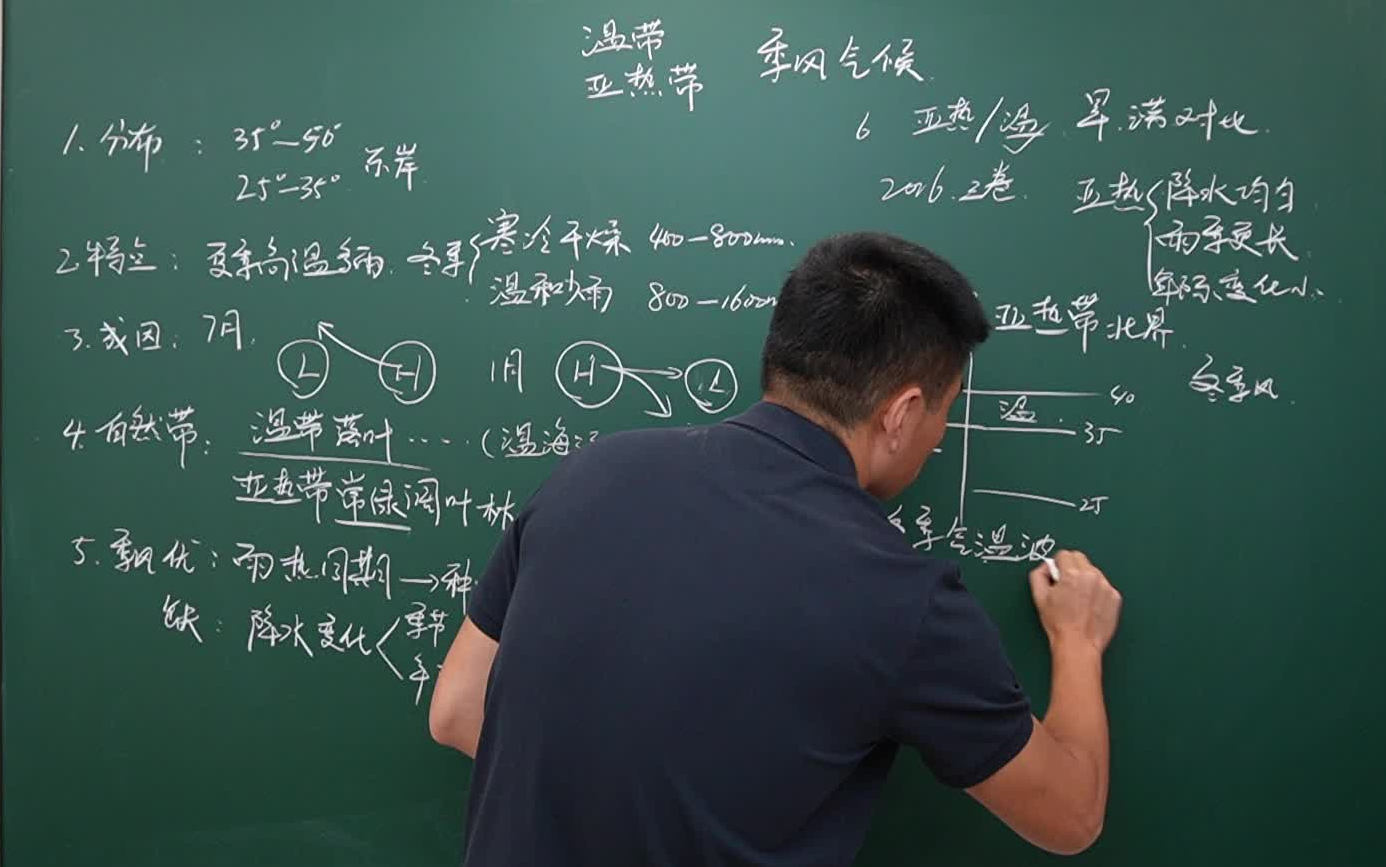 温带
亚热带
季风气候
1. 分布: 35°—50°
25°—35°
东岸
2. 特点: 夏季高温多雨. 冬季
寒冷干燥 400—800mm.
温和少雨 800—1600m
3. 成因: 7月.
L H 1月 H L
4. 自然带: 温带落叶····(温海
亚热带常绿阔叶林
5. 季风优: 雨热同期→种
缺: 降水变化
季节
年
6 亚热/温 旱.涝对比
2016.三卷. 亚热
降水均匀
雨季更长
年际变化小
亚热带北界
冬季风
40
温
35
25
冬季气温波